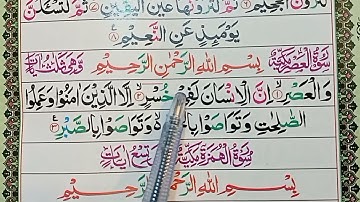 لَتَرَوُنَّ الْجَحِيْمَ ۙ﴿۶﴾ ثُمَّ لَتَرَوُنَّهَا عَيْنَ الْيَقِيْنِ ۙ﴿۷﴾ ثُمَّ لَتُسْـَٔلُنَّ
يَوْمَىِٕذٍ عَنِ النَّعِيْمِ ﴿۸﴾
سُوْرَةُ الْعَصْرِ مَكِّيَّةٌ بِسْمِ اللّٰهِ الرَّحْمٰنِ الرَّحِيْمِ وَهِيَ ثَلٰثُ اٰيَاتٍ
وَالْعَصْرِ ۙ﴿۱﴾ اِنَّ الْاِنْسَانَ لَفِيْ خُسْرٍ ۙ﴿۲﴾ اِلَّا الَّذِيْنَ اٰمَنُوْا وَعَمِلُوا
الصّٰلِحٰتِ وَتَوَاصَوْا بِالْحَقِّ وَتَوَاصَوْا بِالصَّبْرِ ﴿۳﴾
سُوْرَةُ الْهُمَزَةِ مَكِّيَّةٌ تِسْعُ اٰيَاتٍ
بِسْمِ اللّٰهِ الرَّحْمٰنِ الرَّحِيْمِ